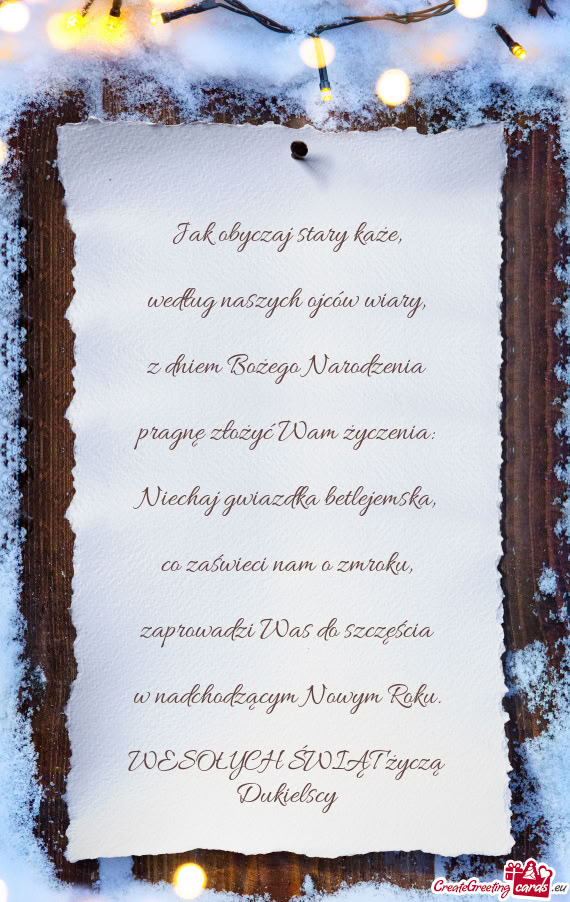 Jak obyczaj stary każe,
według naszych ojców wiary,
z dniem Bożego Narodzenia
pragnę złożyć Wam życzenia:
Niechaj gwiazdka betlejemska,
co zaświeci nam o zmroku,
zaprowadzi Was do szczęścia
w nadchodzącym Nowym Roku.
WESOŁYCH ŚWIĄT życzą
Dukielscy
CreateGreeting cards .eu